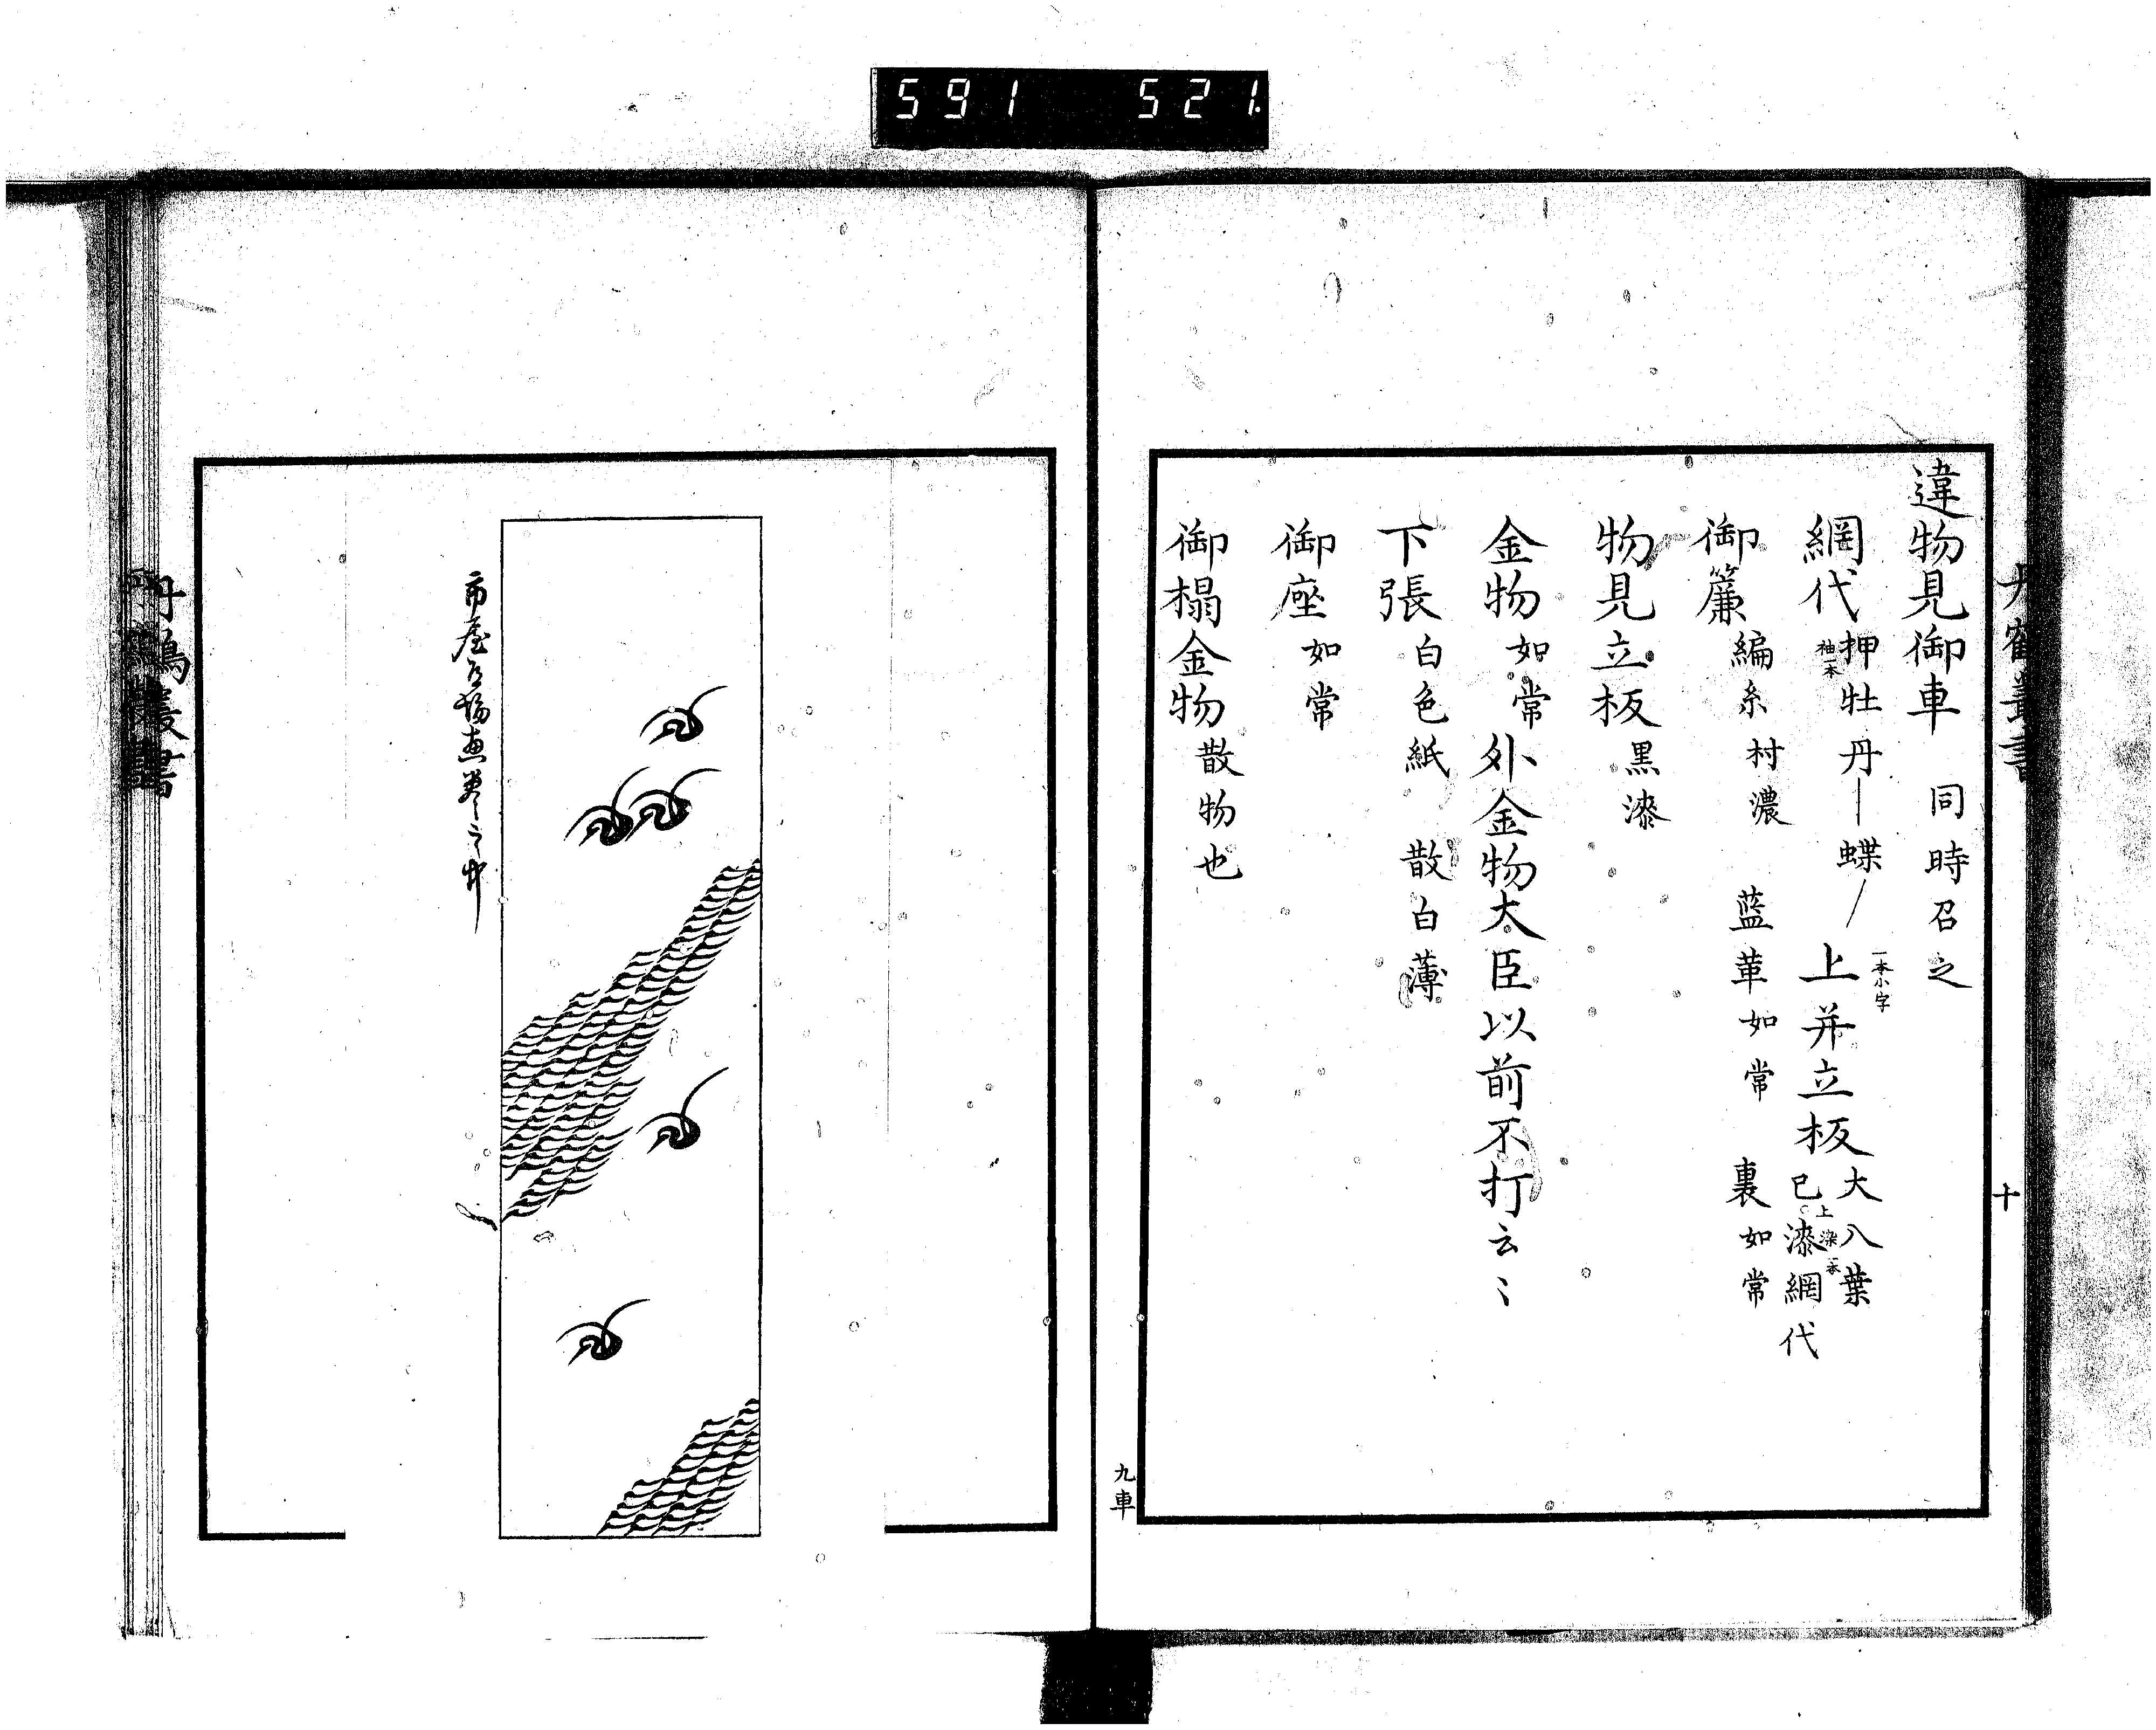 591 521
丹鶴叢書
十
違物見御車 同時召之
網代 押牡丹｜蝶／ 袖一本 上并立板 一本小字 大八葉 已上漆網代 染一本
御簾 編糸村濃 藍革如常 裏如常
物見立板 黒漆
金物 如常 外金物大臣以前不打云〻
下張 白色紙 散白薄
御座 如常
御榻金物 散物也
九車
丹鶴叢書